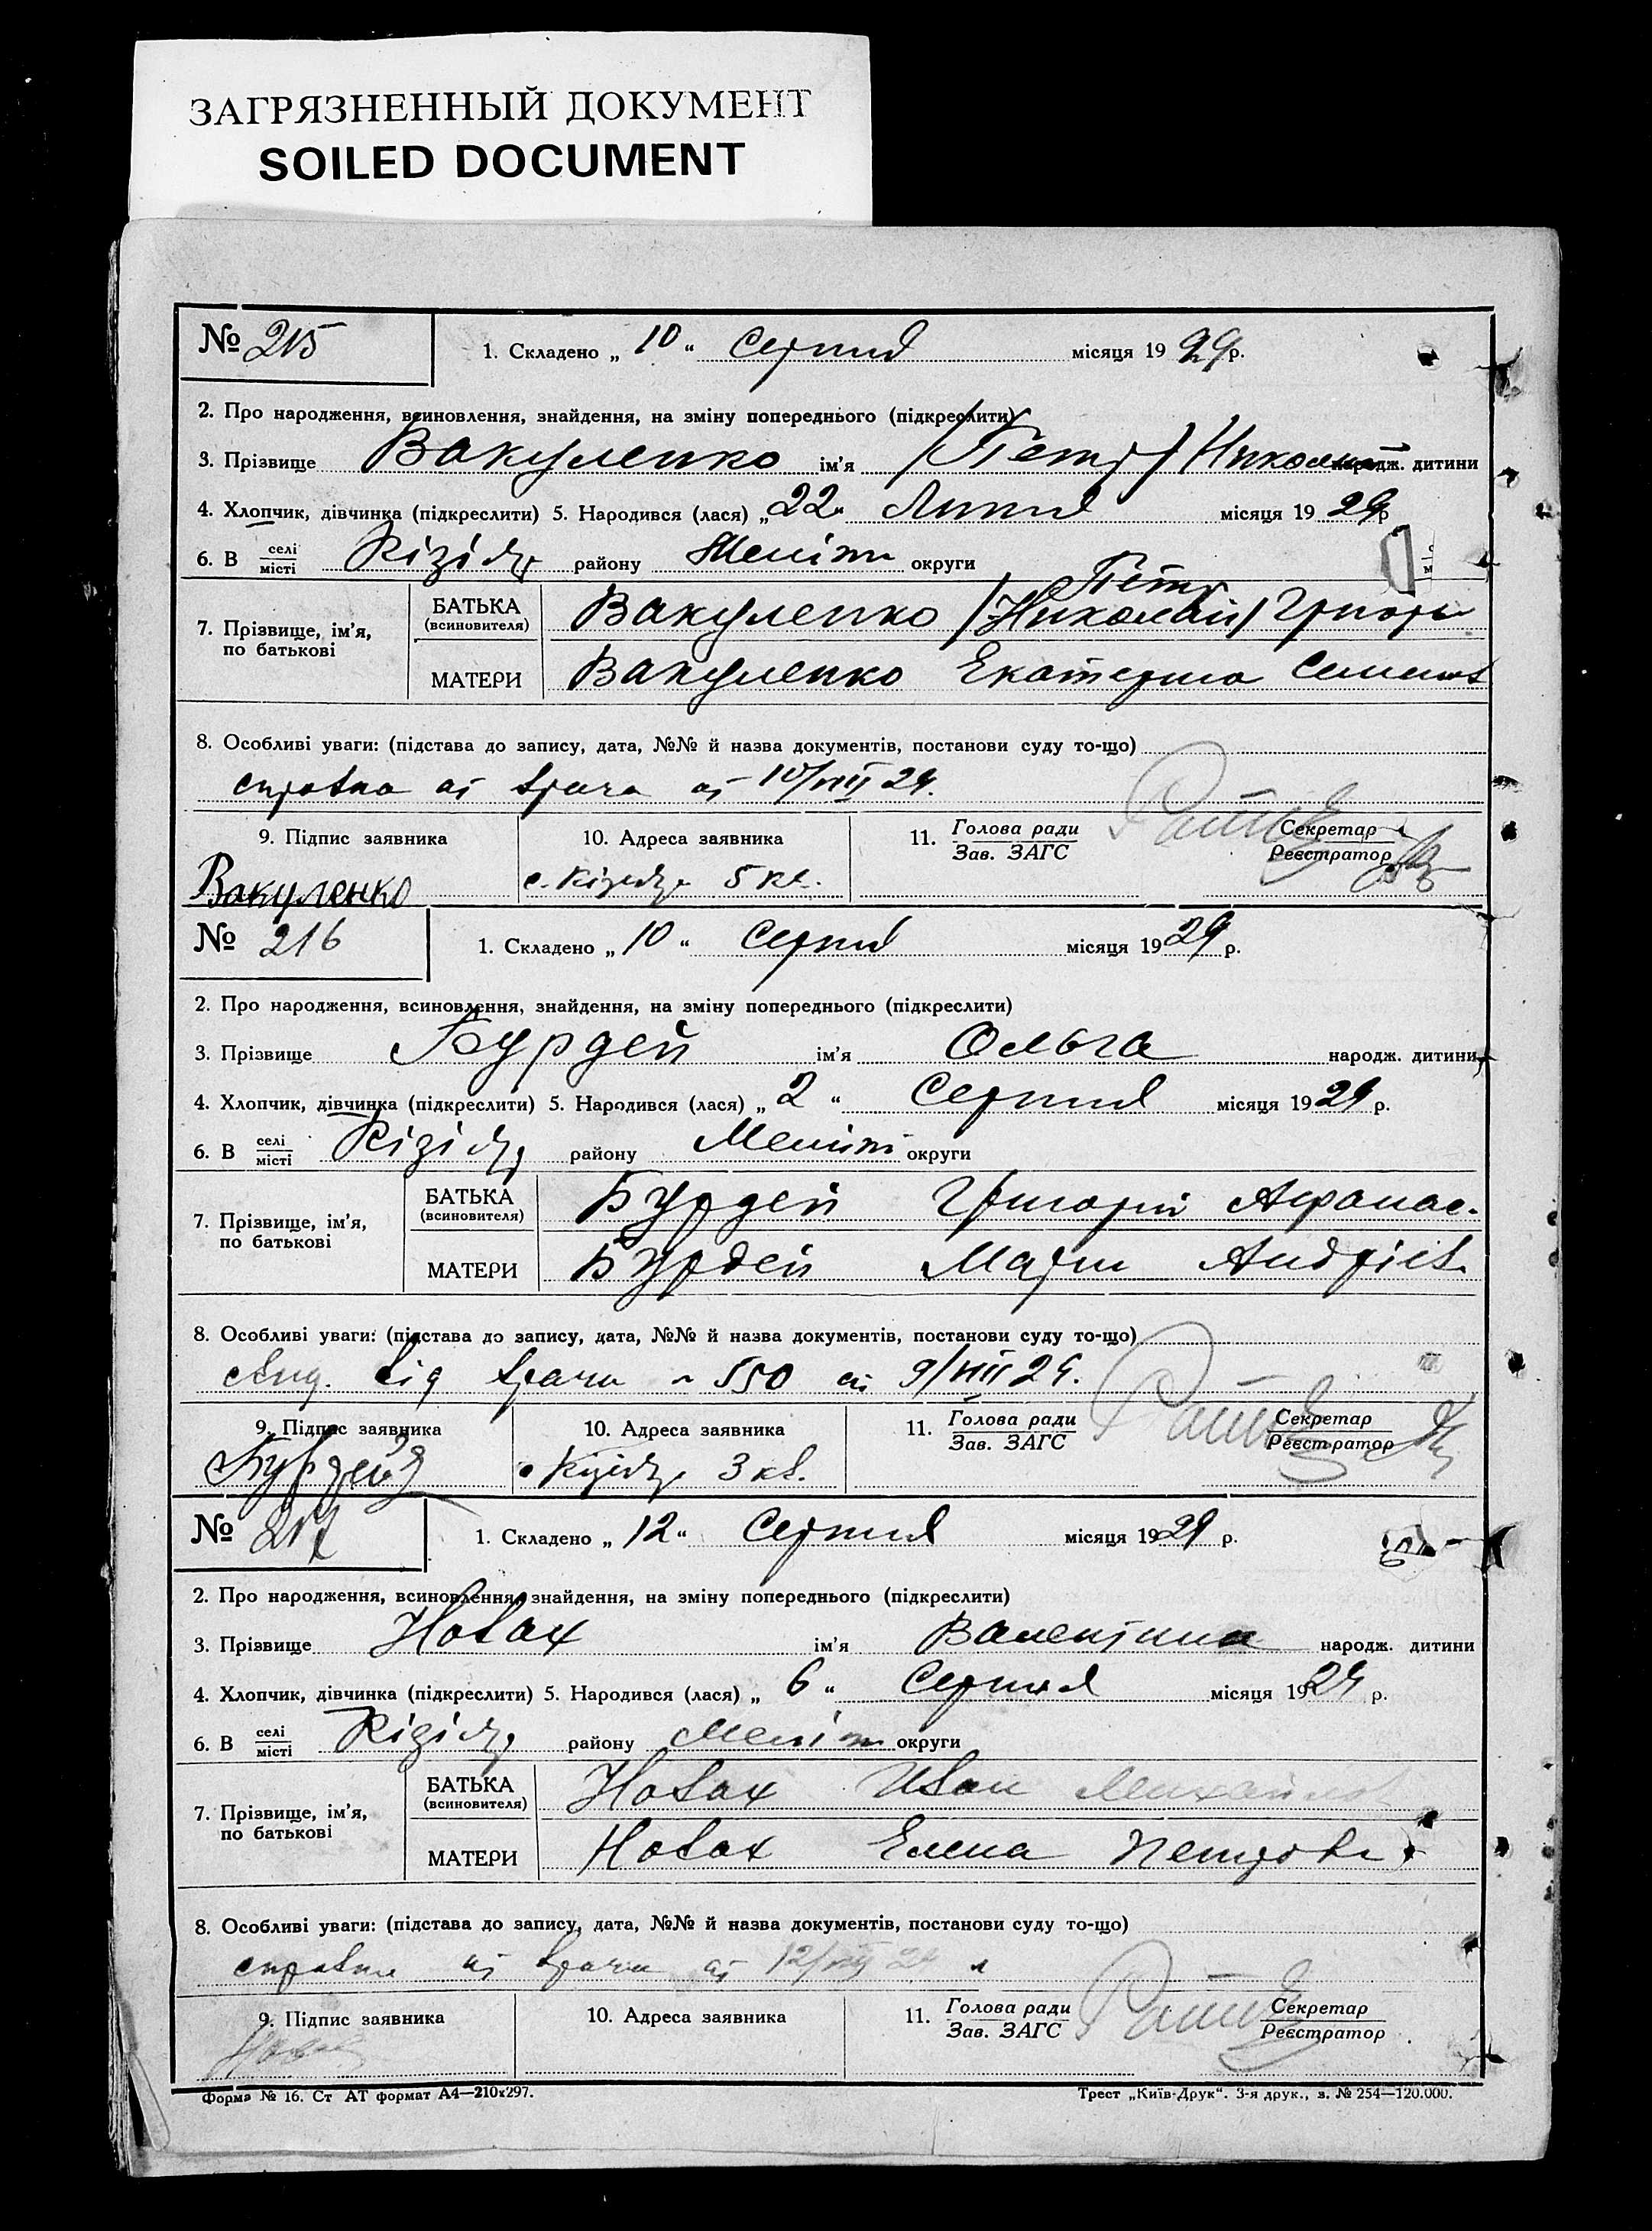 ЗАГРЯЗНЕННЫЙ ДОКУМЕНТ
SOILED DOCUMENT
№ 215
1. Складено „ 10 “ Серпня місяця 19 29 р.
2. Про народження, всиновлення, знайдення, на зміну попереднього (підкреслити)
3. Прізвище Вакуленко ім'я /Петр/ Николай народж. дитини
4. Хлопчик, дівчинка (підкреслити) 5. Народився (лася) „ 22 “ Липня місяця 19 29 р
6. В селі місті Кізіяр району Меліт округи
7. Прізвище, ім'я, по батькові
БАТЬКА (всиновителя) Вакуленко /Николай/ Петр Григорь
МАТЕРИ Вакуленко Екатерина Семенов
8. Особливі уваги: (підстава до запису, дата, №№ й назва документів, постанови суду то-що)
справка от врача от 10/VIII 29.
9. Підпис заявника
10. Адреса заявника
11. Голова ради Зав. ЗАГС
Секретар Реєстратор
Вакуленко
с. Кізіяр 5 кв.
№ 216
1. Складено „ 10 “ Серпня місяця 19 29 р.
2. Про народження, всиновлення, знайдення, на зміну попереднього (підкреслити)
3. Прізвище Бурдей ім'я Ольга народж. дитини
4. Хлопчик, дівчинка (підкреслити) 5. Народився (лася) „ 2 “ Серпня місяця 19 29 р.
6. В селі місті Кізіяр району Меліт округи
7. Прізвище, ім'я, по батькові
БАТЬКА (всиновителя) Бурдей Григорій Афанас.
МАТЕРИ Бурдей Мария Андріев.
8. Особливі уваги: (підстава до запису, дата, №№ й назва документів, постанови суду то-що)
від врача 550 от 9/VIII 29.
9. Підпис заявника
10. Адреса заявника
11. Голова ради Зав. ЗАГС
Секретар Реєстратор
Бурдей
с Кізіяр 3 кв.
№ 217
1. Складено „ 12 “ Серпня місяця 19 29 р.
2. Про народження, всиновлення, знайдення, на зміну попереднього (підкреслити)
3. Прізвище Новах ім'я Валентина народж. дитини
4. Хлопчик, дівчинка (підкреслити) 5. Народився (лася) „ 6 “ Серпня місяця 19 29 р.
6. В селі місті Кізіяр району Меліт округи
7. Прізвище, ім'я, по батькові
БАТЬКА (всиновителя) Новах Иван Михайлов
МАТЕРИ Новах Елена Петровн
8. Особливі уваги: (підстава до запису, дата, №№ й назва документів, постанови суду то-що)
справка от врача от 12/VIII 29
9. Підпис заявника
10. Адреса заявника
11. Голова ради Зав. ЗАГС
Секретар Реєстратор
Форма № 16. Ст АТ формат А4—210x297.
Трест „Київ-Друк“. 3-я друк., з. № 254—120.000.